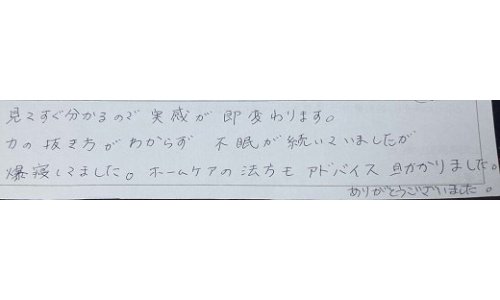 見てすぐ分かるので 実感が 即 変わります。
力の 抜き方が わからず 不眠が 続いていましたが
爆寝してました。ホームケアの 法方も アドバイス 助かりました。
ありがとうございました。